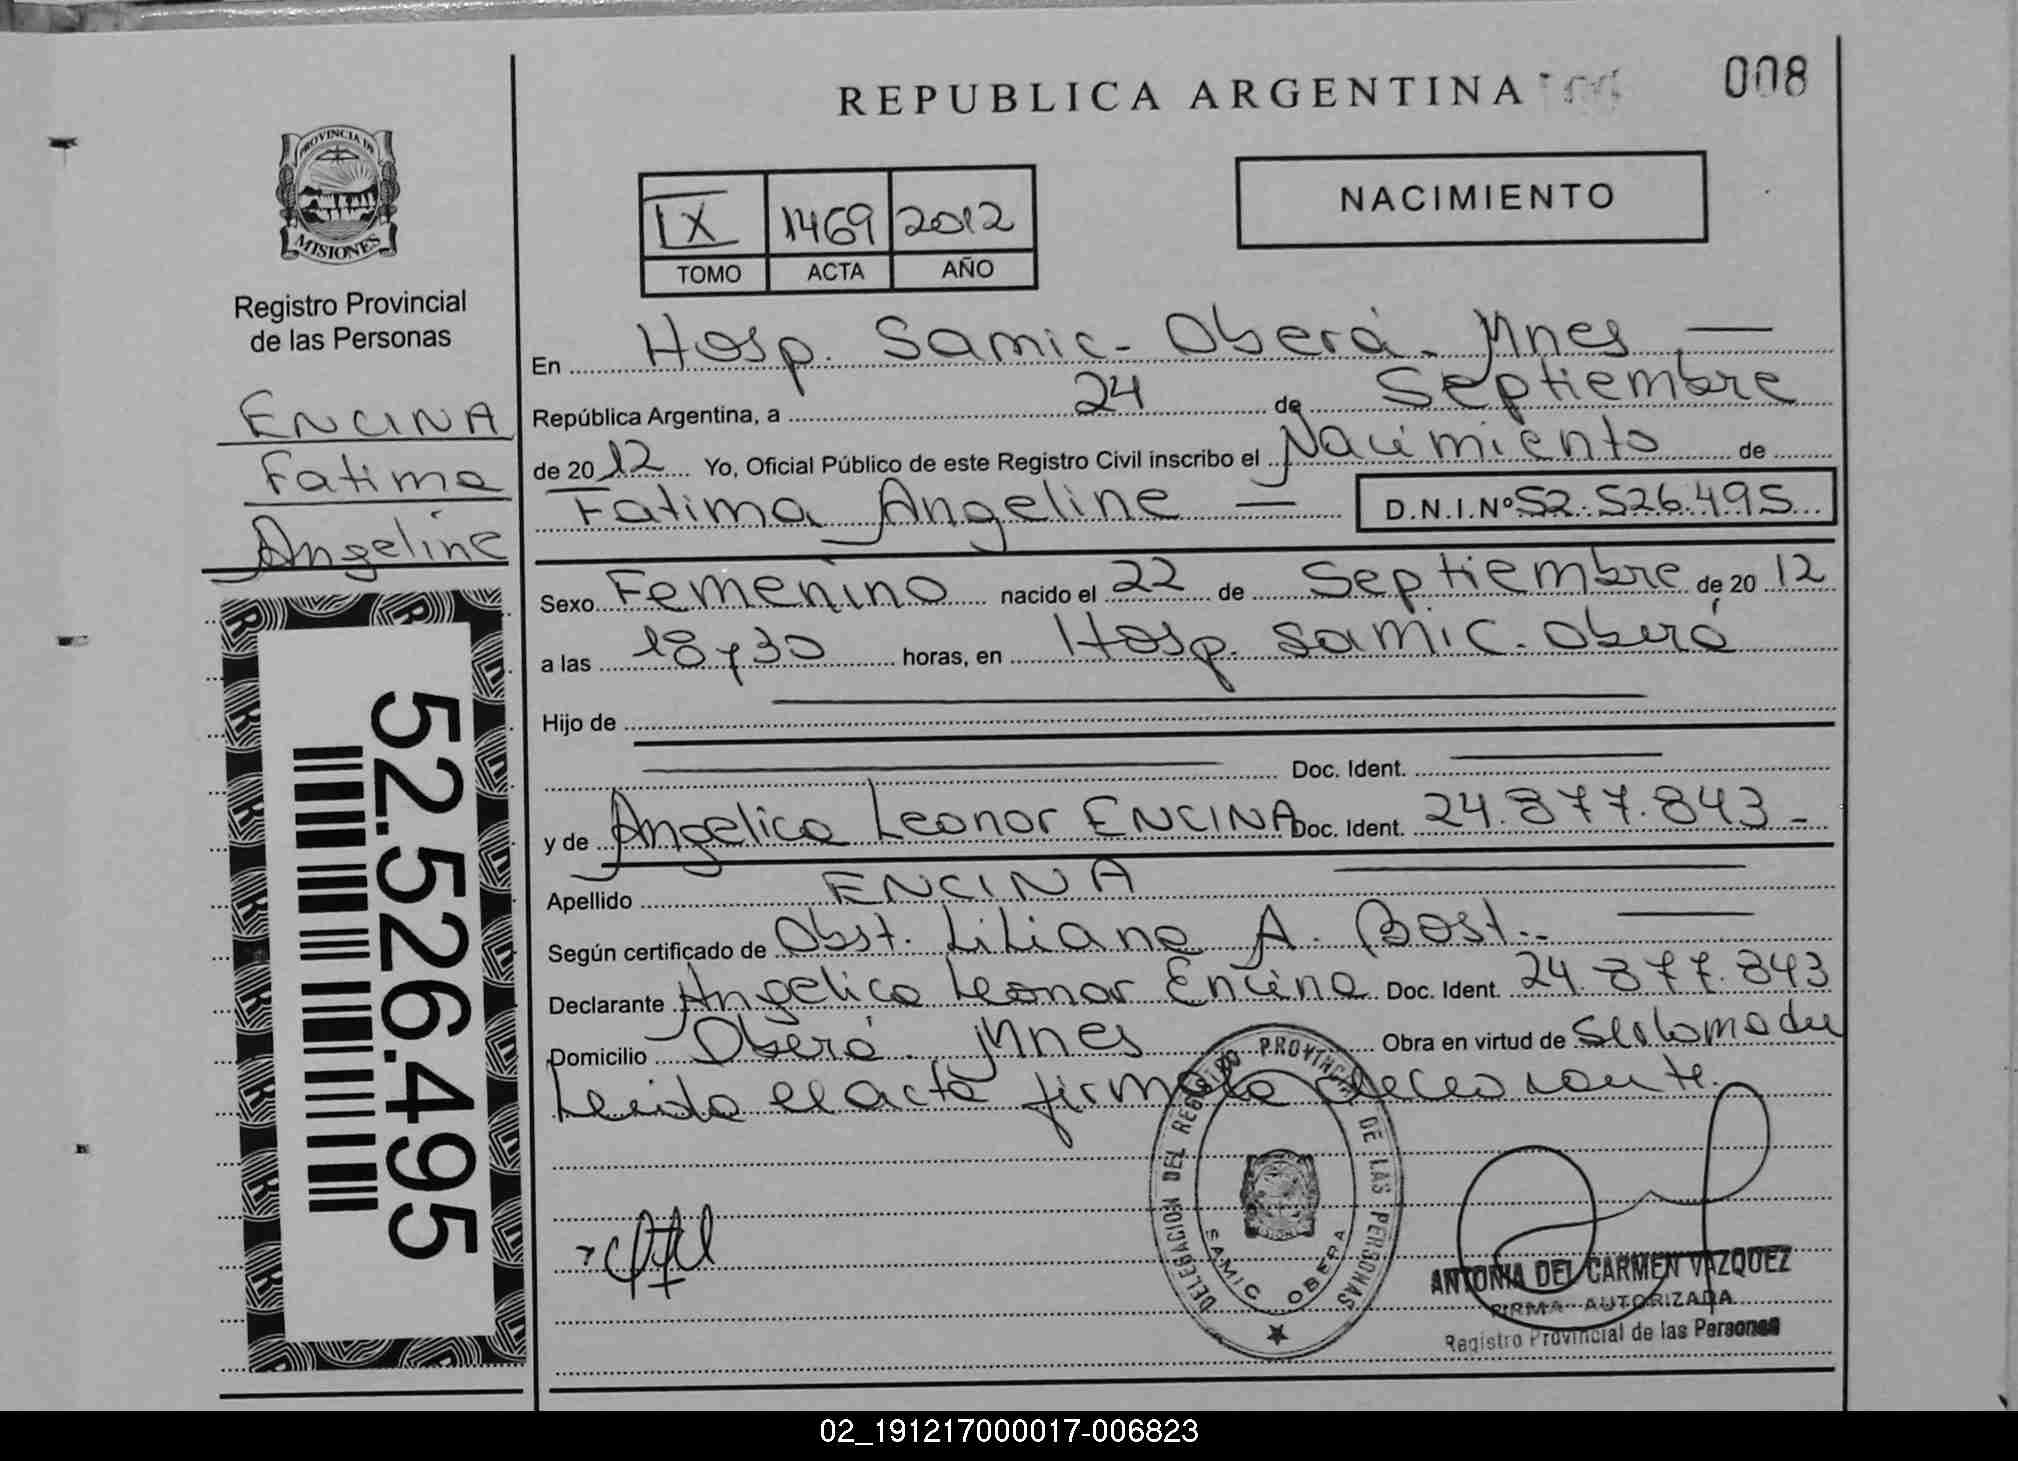 REPUBLICA ARGENTINA
008
PROVINCIA DE
MISIONES
Registro Provincial
de las Personas
ENCINA
Fatima
Angeline
52.526.495
IX 1469 2012
TOMO ACTA AÑO
NACIMIENTO
En Hosp. Samic - Oberá. Mnes
República Argentina, a 24 de Septiembre
de 2012 Yo, Oficial Público de este Registro Civil inscribo el Nacimiento de
Fatima Angeline D.N.I.Nº 52.526.495
Sexo Femenino nacido el 22 de Septiembre de 2012
a las 18 y 30 horas, en Hosp. Samic. Oberá
Hijo de
Doc. Ident.
y de Angelica Leonor ENCINA Doc. Ident. 24.877.843 -
Apellido ENCINA
Según certificado de Obst. Liliana A. Bost.
Declarante Angelica Leonor Encina Doc. Ident. 24.877.843
Domicilio Oberá. Mnes Obra en virtud de
Leida el acta firma la declarante.
DELEGACION DEL REGISTRO PROVINCIAL DE LAS PERSONAS
SAMIC OBERA
ANTONIA DEL CARMEN VAZQUEZ
FIRMA AUTORIZADA
Registro Provincial de las Personas
02_191217000017-006823